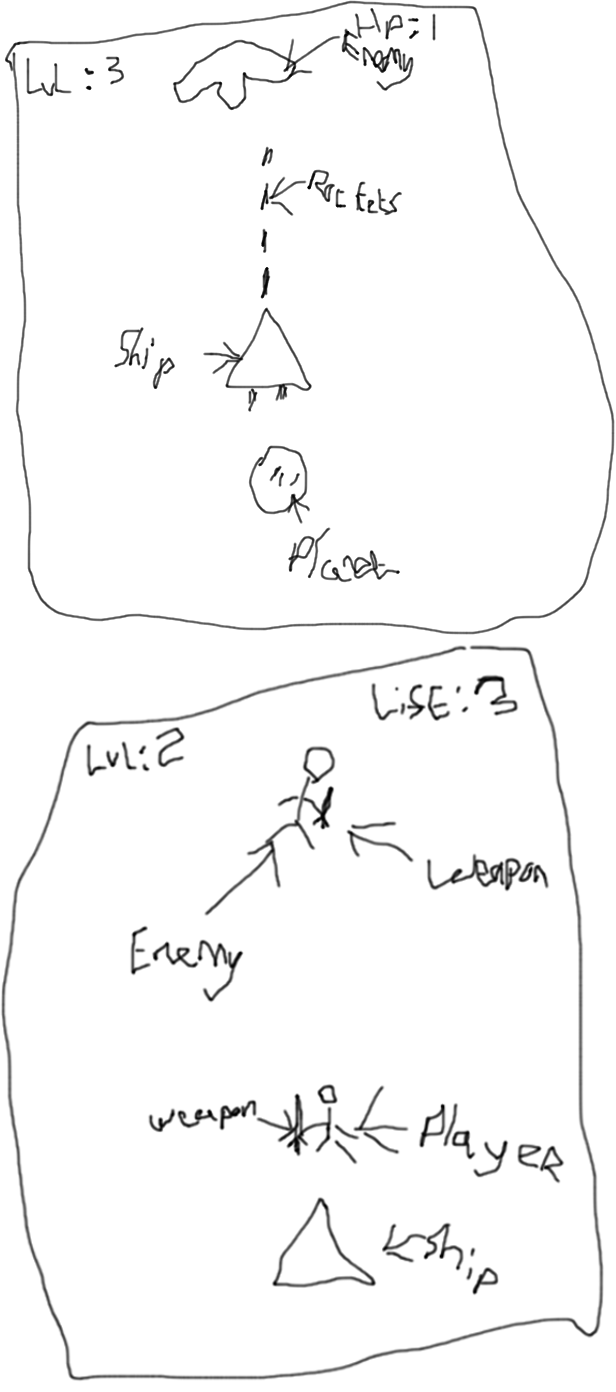 LvL:3
HP:1
Enemy
Rockets
Ship
Planet
LvL:2
LiSE:3
Weapon
Enemy
weapon
PlayER
Ship